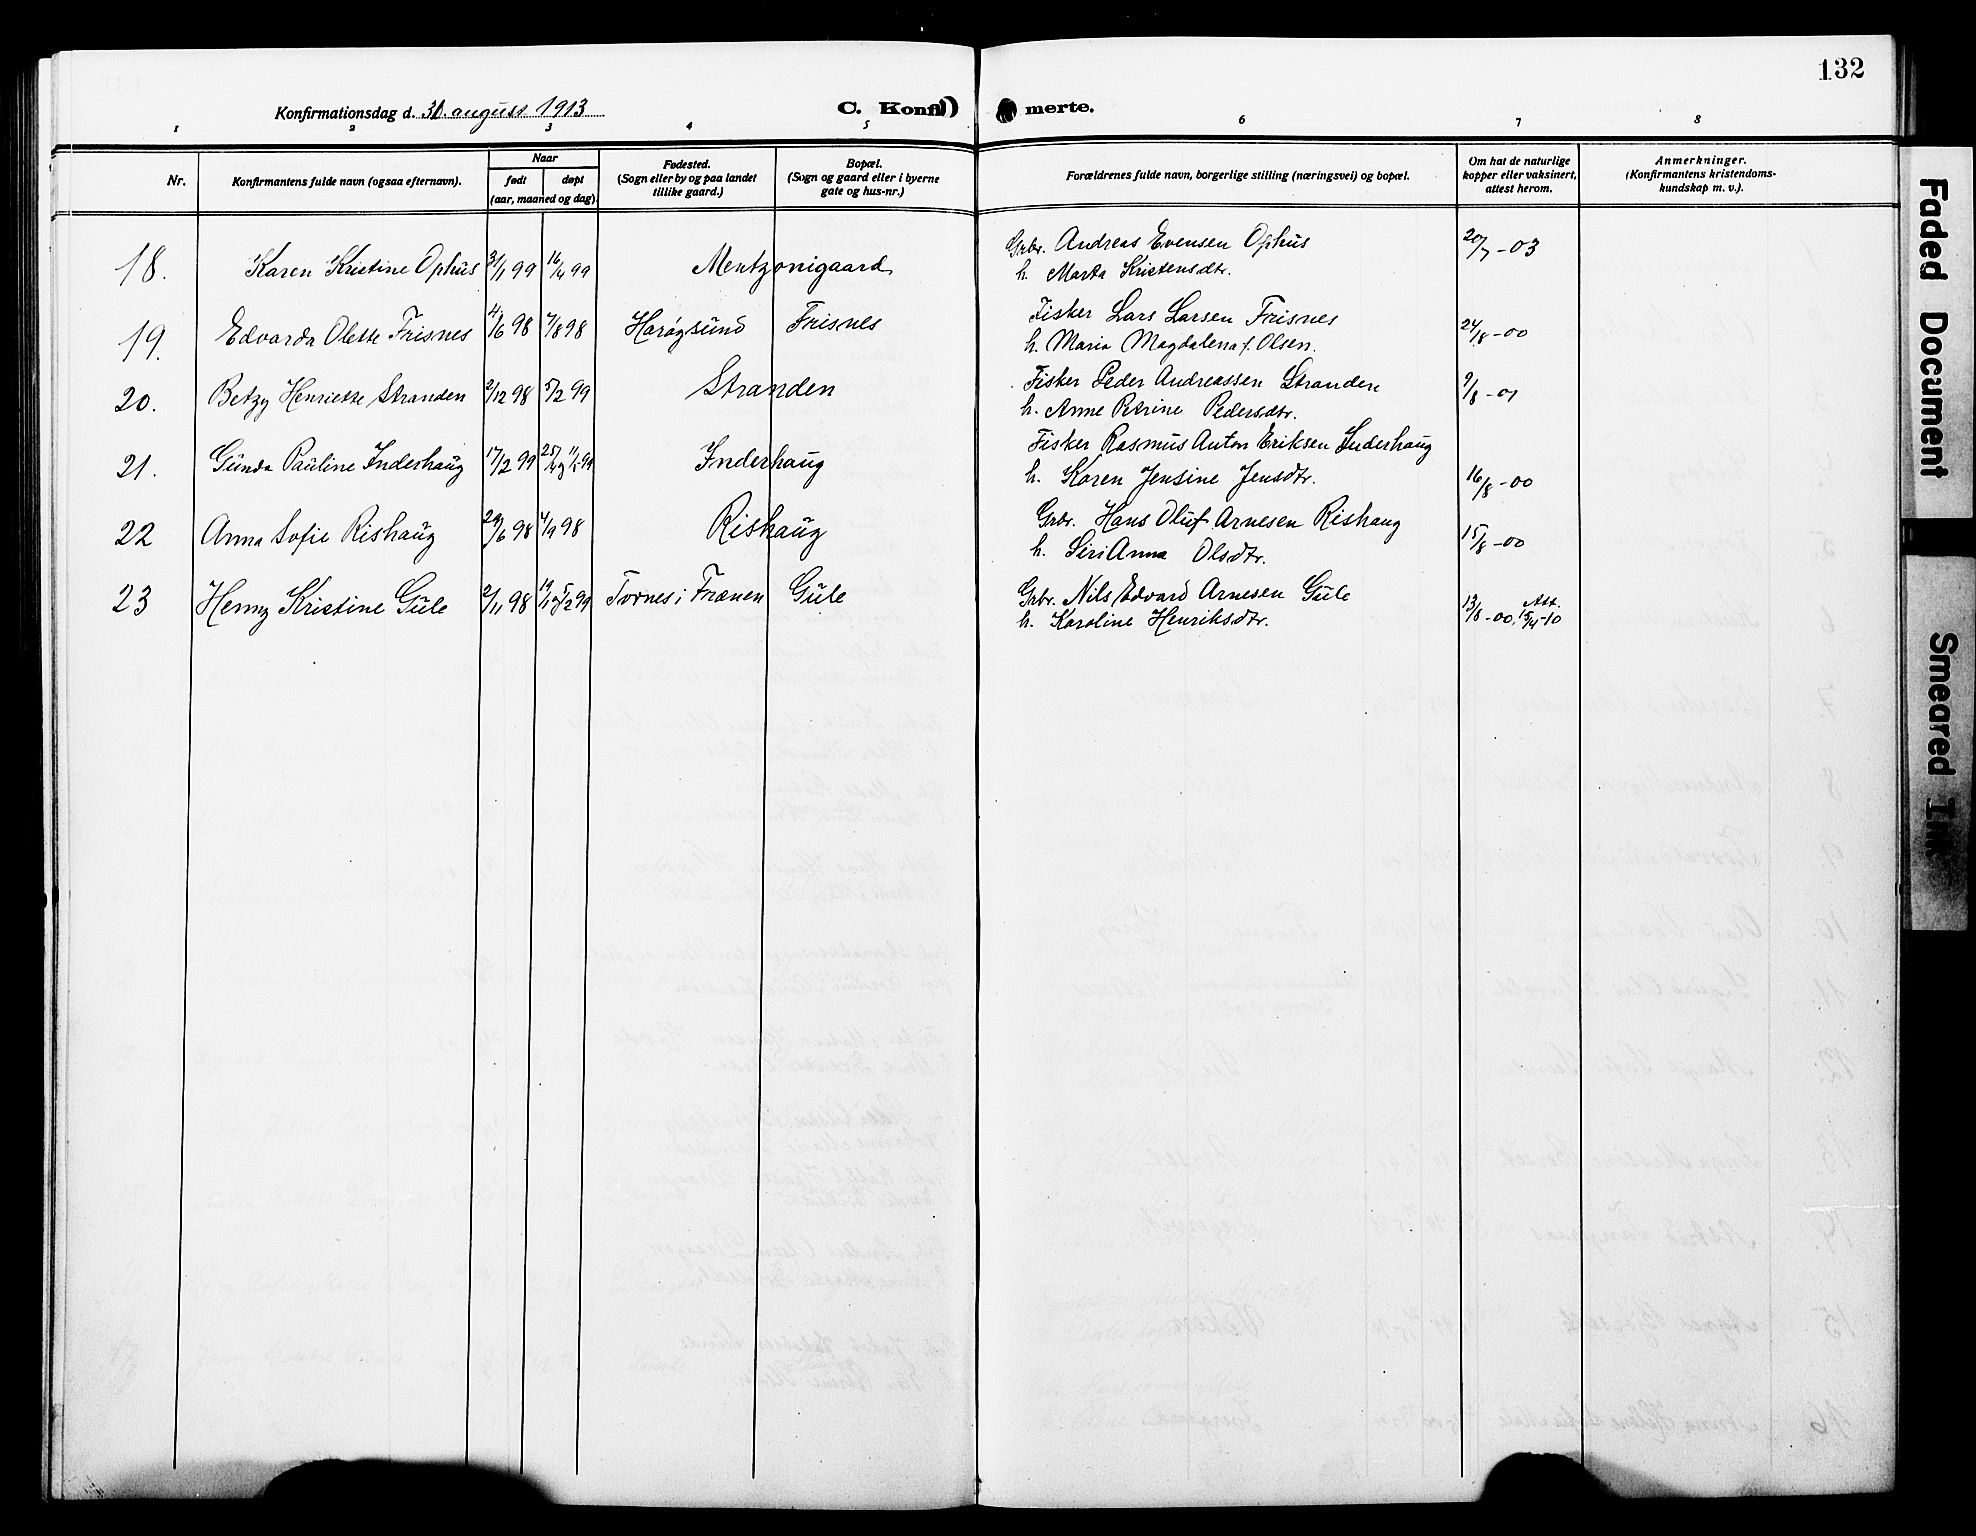 132
Konfirmationsdag d. 31. august 1913
C. Konfi merte.
1 2 3 4 5 6 7 8
Nr.
Konfirmantens fulde navn (ogsaa efternavn).
Naar
født døpt
(aar, maaned og dag).
Fødested.
(Sogn eller by og paa landet
tillike gaard.)
Bopæl.
(Sogn og gaard eller i byerne
gate og hus-nr.)
Forældrenes fulde navn, borgerlige stilling (næringsvei) og bopæl.
Om hat de naturlige
kopper eller vaksinert,
attest herom.
Anmerkninger.
(Konfirmantens kristendoms-
kundskap m. v.).
18. Karen Kristine Ophus 31/1 99 16/4 99 Mentzonigaard Grbr. Andreas Evensen Ophus 20/7-03
h. Marta Kristensdtr.
19. Edvarda Olette Frisnes 4/6 98 7/8 98 Harøgsund Frisnes Fisker Lars Larsen Frisnes 24/8-00
h. Maria Magdalena f. Olsen.
20. Betzy Henriette Stranden 2/12 98 5/2 99 Stranden Fisker Peder Andreassen Stranden 9/8-01
h. Anne Petrine Pedersdtr.
21. Gunda Pauline Inderhaug 17/2 99 Inderhaug Fisker Rasmus Anton Eriksen Inderhaug
h. Karen Jensine Jensdtr. 16/8-00
22 Anna Sofie Rishaug 29/6 98 4/9 98 Rishaug Grbr. Hans Oluf Arnesen Rishaug 15/8-00
h. Siri Anna Olsdtr.
23 Henny Kristine Gule 2/11 98 Tornes i Frænen Gule Grbr. Nils Edvard Arnesen Gule 13/8-00, Att. 15/4-10
h. Karoline Henriksdtr.
Faded Document
Smeared Ink